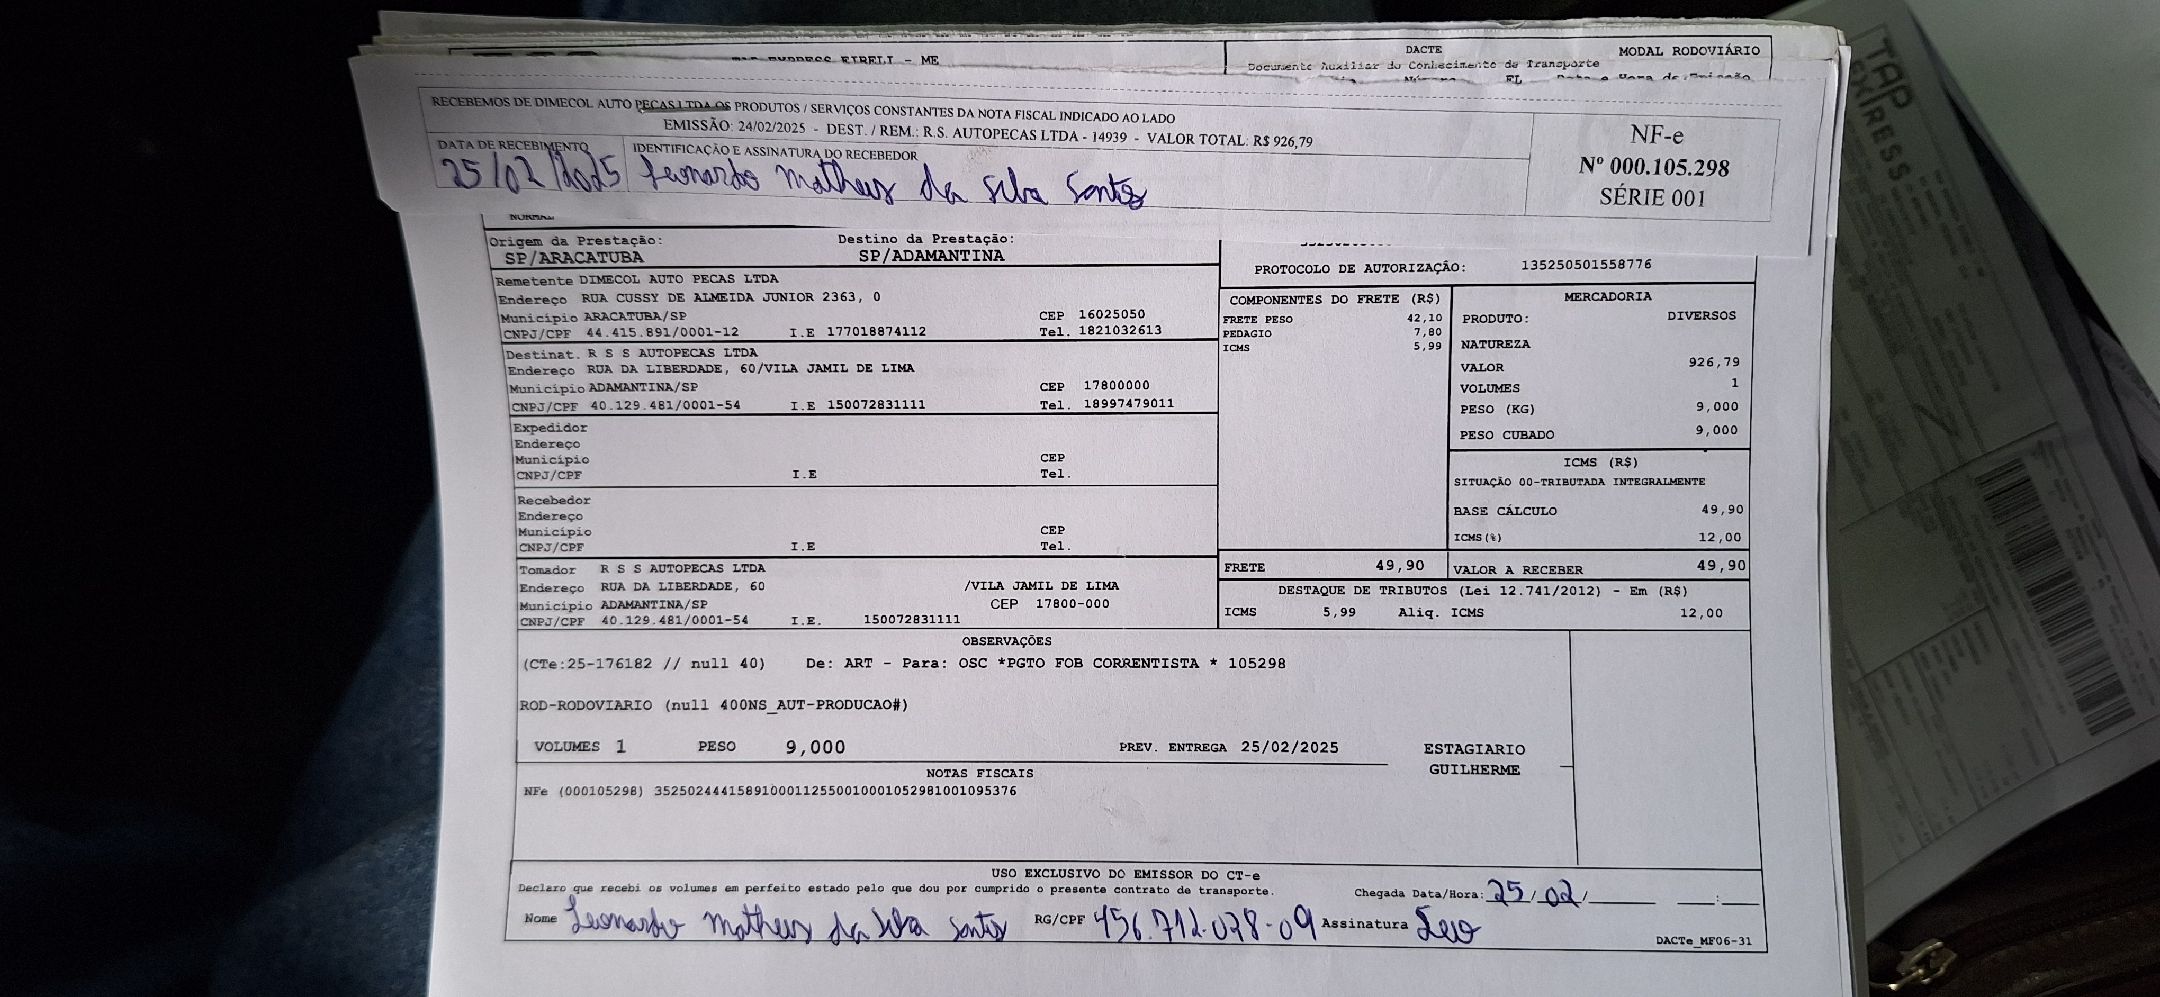 EXPRESS EIRELI - ME
DACTE
MODAL RODOVIÁRIO
Documento Auxiliar do Conhecimento de Transporte
RECEBEMOS DE DIMECOL AUTO PECAS LTDA OS PRODUTOS / SERVIÇOS CONSTANTES DA NOTA FISCAL INDICADO AO LADO
EMISSÃO: 24/02/2025 - DEST. / REM.: R.S. AUTOPECAS LTDA - 14939 - VALOR TOTAL: R$ 926,79
DATA DE RECEBIMENTO
IDENTIFICAÇÃO E ASSINATURA DO RECEBEDOR
25/02/2025 Leonardo Matheus da Silva Santos
NF-e
Nº 000.105.298
SÉRIE 001
NORMAL
Origem da Prestação:
Destino da Prestação:
SP/ARACATUBA
SP/ADAMANTINA
PROTOCOLO DE AUTORIZAÇÃO: 135250501558776
Remetente DIMECOL AUTO PECAS LTDA
Endereço RUA CUSSY DE ALMEIDA JUNIOR 2363, 0
Município ARACATUBA/SP CEP 16025050
CNPJ/CPF 44.415.891/0001-12 I.E 177018874112 Tel. 1821032613
Destinat. R S S AUTOPECAS LTDA
Endereço RUA DA LIBERDADE, 60/VILA JAMIL DE LIMA
Município ADAMANTINA/SP CEP 17800000
CNPJ/CPF 40.129.481/0001-54 I.E 150072831111 Tel. 18997479011
Expedidor
Endereço
Município CEP
CNPJ/CPF I.E Tel.
Recebedor
Endereço
Município CEP
CNPJ/CPF I.E Tel.
Tomador R S S AUTOPECAS LTDA
Endereço RUA DA LIBERDADE, 60 /VILA JAMIL DE LIMA
Município ADAMANTINA/SP CEP 17800-000
CNPJ/CPF 40.129.481/0001-54 I.E. 150072831111
COMPONENTES DO FRETE (R$)
FRETE PESO 42,10
PEDAGIO 7,80
ICMS 5,99
MERCADORIA
PRODUTO: DIVERSOS
NATUREZA
VALOR 926,79
VOLUMES 1
PESO (KG) 9,000
PESO CUBADO 9,000
ICMS (R$)
SITUAÇÃO 00-TRIBUTADA INTEGRALMENTE
BASE CÁLCULO 49,90
ICMS(%) 12,00
FRETE 49,90
VALOR A RECEBER 49,90
DESTAQUE DE TRIBUTOS (Lei 12.741/2012) - Em (R$)
ICMS 5,99 Aliq. ICMS 12,00
OBSERVAÇÕES
(CTe:25-176182 // null 40) De: ART - Para: OSC *PGTO FOB CORRENTISTA * 105298
ROD-RODOVIARIO (null 400NS_AUT-PRODUCAO#)
VOLUMES 1 PESO 9,000 PREV. ENTREGA 25/02/2025
ESTAGIARIO
GUILHERME
NOTAS FISCAIS
NFe (000105298) 35250244415891000112550010001052981001095376
USO EXCLUSIVO DO EMISSOR DO CT-e
Declaro que recebi os volumes em perfeito estado pelo que dou por cumprido o presente contrato de transporte.
Chegada Data/Hora: 25/02/
Nome Leonardo Matheus da Silva Santos RG/CPF 456.712.028-09 Assinatura Leo
DACTe_MF06-31
TAP
EXPRESS